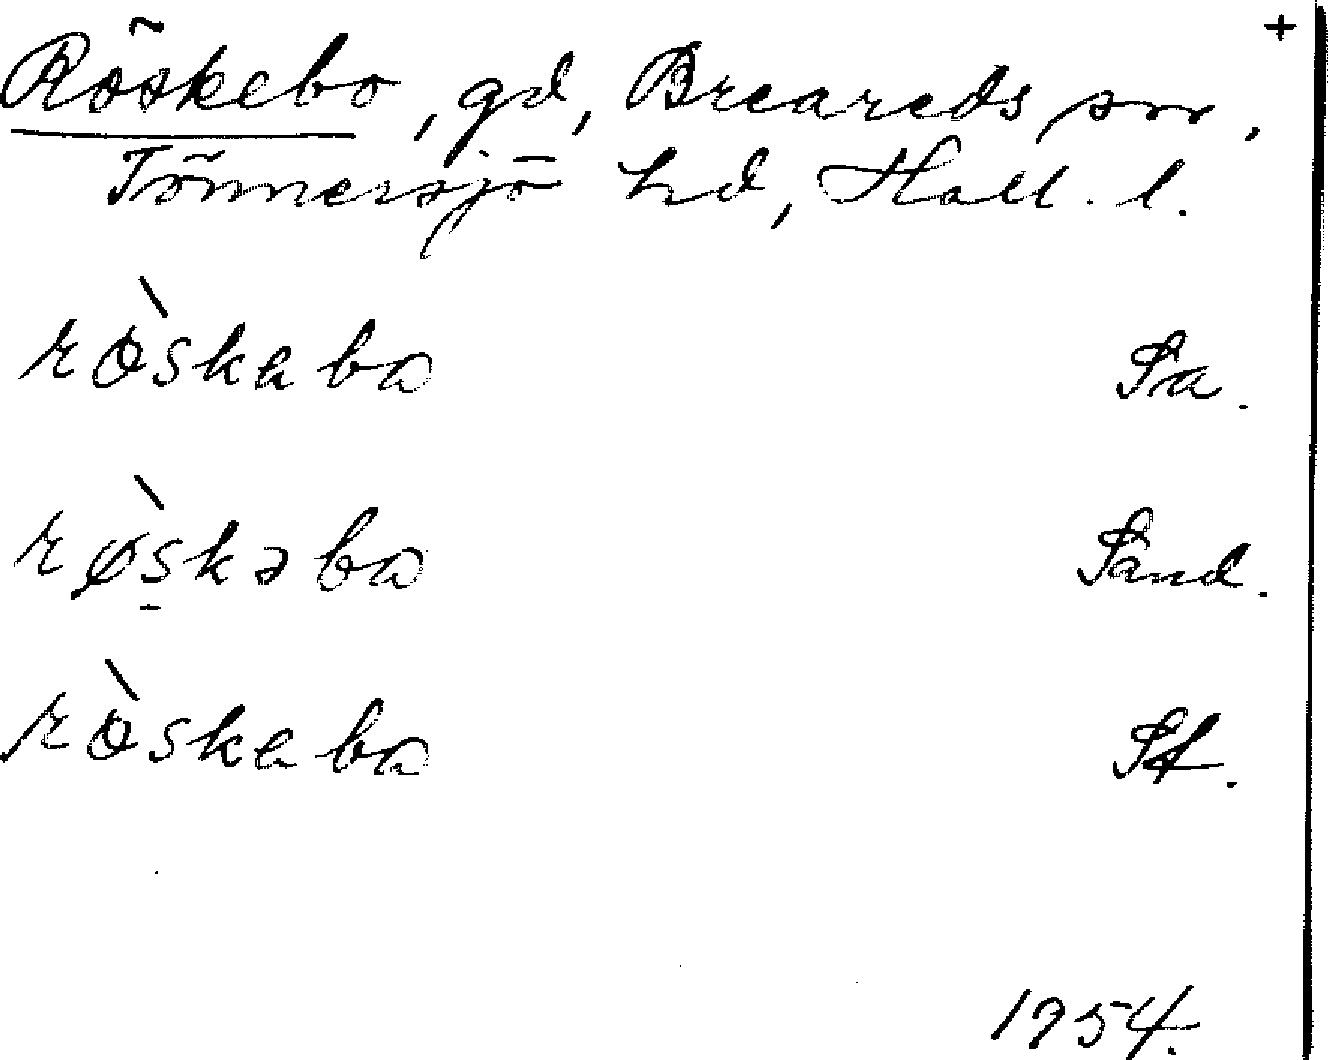 +
Röskebo, gd, Breareds sn,
Tönnersjö hd, Hall. l.
rɵ̀skaba Sa.
rø̀skəba Sand.
rɵ̀skeba St.
1954.